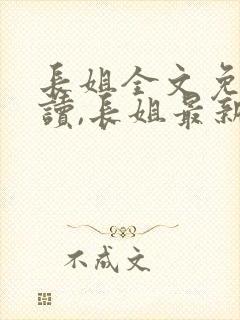 長姐全文免
讀,長姐最新
不成文